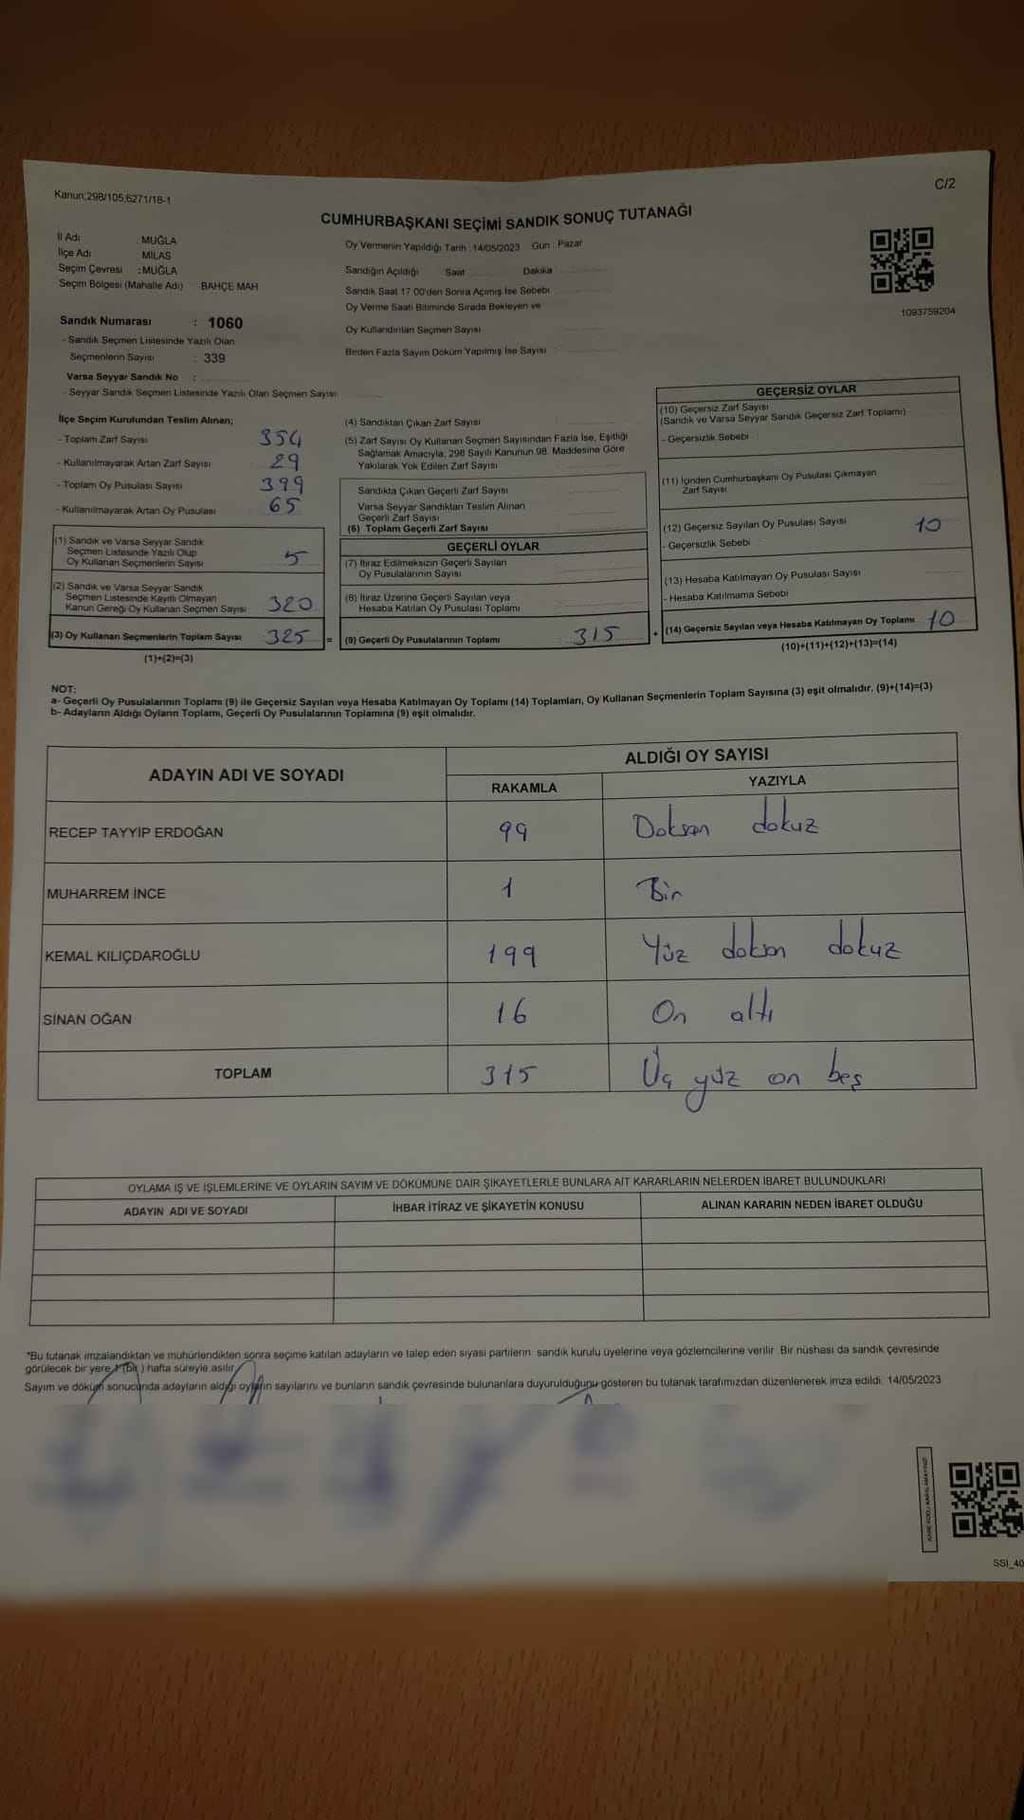 Kanun;298/105;6271/18-1
C/2
CUMHURBAŞKANI SEÇİMİ SANDIK SONUÇ TUTANAĞI
İl Adı : MUĞLA
İlçe Adı : MİLAS
Seçim Çevresi : MUĞLA
Seçim Bölgesi (Mahalle Adı) BAHÇE MAH
Sandık Numarası : 1060
- Sandık Seçmen Listesinde Yazılı Olan
Seçmenlerin Sayısı : 339
Varsa Seyyar Sandık No :
- Seyyar Sandık Seçmen Listesinde Yazılı Olan Seçmen Sayısı
Oy Vermenin Yapıldığı Tarih : 14/05/2023 Gün : Pazar
Sandığın Açıldığı Saat Dakika
Sandık Saat 17:00'den Sonra Açılmış İse Sebebi
Oy Verme Saati Bitiminde Sırada Bekleyen ve
Oy Kullandırılan Seçmen Sayısı
Birden Fazla Sayım Döküm Yapılmış İse Sayısı
1093759204
İlçe Seçim Kurulundan Teslim Alınan;
- Toplam Zarf Sayısı 354
- Kullanılmayarak Artan Zarf Sayısı 29
- Toplam Oy Pusulası Sayısı 399
- Kullanılmayarak Artan Oy Pusulası 65
(1) Sandık ve Varsa Seyyar Sandık
Seçmen Listesinde Yazılı Olup
Oy Kullanan Seçmenlerin Sayısı 5
(2) Sandık ve Varsa Seyyar Sandık
Seçmen Listesinde Kayıtlı Olmayan
Kanun Gereği Oy Kullanan Seçmen Sayısı 320
(3) Oy Kullanan Seçmenlerin Toplam Sayısı 325 =
(1)+(2)=(3)
(4) Sandıktan Çıkan Zarf Sayısı
(5) Zarf Sayısı Oy Kullanan Seçmen Sayısından Fazla İse, Eşitliği
Sağlamak Amacıyla, 298 Sayılı Kanunun 98. Maddesine Göre
Yakılarak Yok Edilen Zarf Sayısı
Sandıkta Çıkan Geçerli Zarf Sayısı
Varsa Seyyar Sandıktan Teslim Alınan
Geçerli Zarf Sayısı
(6) Toplam Geçerli Zarf Sayısı
GEÇERLİ OYLAR
(7) İtiraz Edilmeksizin Geçerli Sayılan
Oy Pusulalarının Sayısı
(8) İtiraz Üzerine Geçerli Sayılan veya
Hesaba Katılan Oy Pusulası Toplamı
(9) Geçerli Oy Pusulalarının Toplamı 315 +
GEÇERSİZ OYLAR
(10) Geçersiz Zarf Sayısı
(Sandık ve Varsa Seyyar Sandık Geçersiz Zarf Toplamı)
- Geçersizlik Sebebi
(11) İçinden Cumhurbaşkanı Oy Pusulası Çıkmayan
Zarf Sayısı
(12) Geçersiz Sayılan Oy Pusulası Sayısı 10
- Geçersizlik Sebebi
(13) Hesaba Katılmayan Oy Pusulası Sayısı
- Hesaba Katılmama Sebebi
(14) Geçersiz Sayılan veya Hesaba Katılmayan Oy Toplamı 10
(10)+(11)+(12)+(13)=(14)
NOT:
a- Geçerli Oy Pusulalarının Toplamı (9) ile Geçersiz Sayılan veya Hesaba Katılmayan Oy Toplamı (14) Toplamları, Oy Kullanan Seçmenlerin Toplam Sayısına (3) eşit olmalıdır. (9)+(14)=(3)
b- Adayların Aldığı Oyların Toplamı, Geçerli Oy Pusulalarının Toplamına (9) eşit olmalıdır.
ADAYIN ADI VE SOYADI ALDIĞI OY SAYISI
RAKAMLA YAZIYLA
RECEP TAYYİP ERDOĞAN 99 Doksan dokuz
MUHARREM İNCE 1 Bir
KEMAL KILIÇDAROĞLU 199 Yüz doksan dokuz
SİNAN OĞAN 16 On altı
TOPLAM 315 Üç yüz on beş
OYLAMA İŞ VE İŞLEMLERİNE VE OYLARIN SAYIM VE DÖKÜMÜNE DAİR ŞİKAYETLERLE BUNLARA AİT KARARLARIN NELERDEN İBARET BULUNDUKLARI
ADAYIN ADI VE SOYADI İHBAR İTİRAZ VE ŞİKAYETİN KONUSU ALINAN KARARIN NEDEN İBARET OLDUĞU
*Bu tutanak imzalandıktan ve mühürlendikten sonra seçime katılan adayların ve talep eden siyasi partilerin sandık kurulu üyelerine veya gözlemcilerine verilir. Bir nüshası da sandık çevresinde
görülecek bir yere 1 (bir) hafta süreyle asılır.
Sayım ve döküm sonucunda adayların aldığı oyların sayılarını ve bunların sandık çevresinde bulunanlara duyurulduğunu gösteren bu tutanak tarafımızdan düzenlenerek imza edildi. 14/05/2023
SSI_40